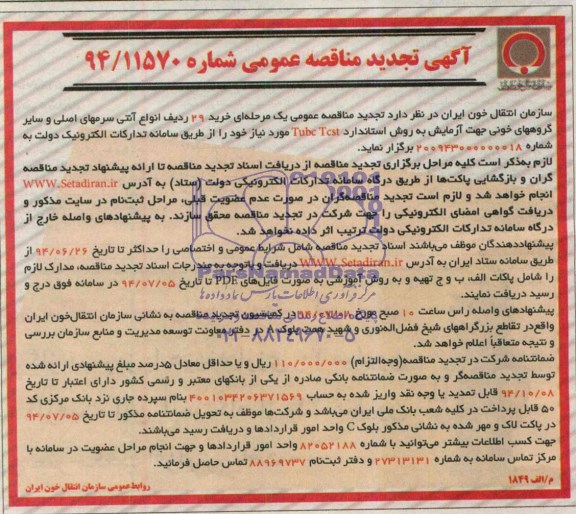 آگهی تجدید مناقصه عمومی شماره ۹۴/۱۱۵۷۰
سازمان انتقال خون ایران در نظر دارد تجدید مناقصه عمومی یک مرحله‌ای خرید ۲۹ ردیف انواع آنتی سرمهای اصلی و سایر
گروههای خونی جهت آزمایش به روش استاندارد Tube Test مورد نیاز خود را از طریق سامانه تدارکات الکترونیک دولت به
شماره ۲۰۰۹۴۳۰۰۰۰۰۰۰۱۸ برگزار نماید.
لازم به‌ذکر است کلیه مراحل برگزاری تجدید مناقصه از دریافت اسناد تجدید مناقصه تا ارائه پیشنهاد تجدید مناقصه
گران و بازگشایی پاکت‌ها از طریق درگاه سامانه تدارکات الکترونیکی دولت (ستاد) به آدرس WWW.Setadiran.ir
انجام خواهد شد و لازم است تجدید مناقصه‌گران در صورت عدم عضویت قبلی، مراحل ثبت‌نام در سایت مذکور و
دریافت گواهی امضای الکترونیکی را جهت شرکت در تجدید مناقصه محقق سازند. به پیشنهادهای واصله خارج از
درگاه سامانه تدارکات الکترونیکی دولت ترتیب اثر داده نخواهد شد.
پیشنهاددهندگان موظف می‌باشند اسناد تجدید مناقصه شامل شرایط عمومی و اختصاصی را حداکثر تا تاریخ ۹۴/۰۶/۲۶ از
طریق سامانه ستاد ایران به آدرس WWW.Setadiran.ir دریافت و باتوجه به مندرجات اسناد تجدید مناقصه، مدارک لازم
را شامل پاکات الف، ب و ج تهیه و به روش آموزشی به صورت فایل‌های PDF تا تاریخ ۹۴/۰۷/۰۵ در سامانه فوق درج و
رسید دریافت نمایند.
پیشنهادهای واصله راس ساعت ۱۰ صبح مورخ در کمیسیون تجدید مناقصه به نشانی سازمان انتقال‌خون ایران
واقع‌در تقاطع بزرگراههای شیخ فضل‌اله‌نوری و شهید همت بلوک در دفتر معاونت توسعه مدیریت و منابع سازمان بررسی
و نتیجه متعاقباً اعلام خواهد شد.
ضمانتنامه شرکت در تجدید مناقصه(وجه‌التزام) ۱۱۰/۰۰۰/۰۰۰ ریال و یا حداقل معادل ۵درصد مبلغ پیشنهادی ارائه شده
توسط تجدید مناقصه‌گر و به صورت ضمانتنامه بانکی صادره از یکی از بانکهای معتبر و رسمی کشور دارای اعتبار تا تاریخ
۹۴/۱۰/۰۸ قابل تمدید یا وجه نقد واریز شده به حساب ۴۰۰۱۰۳۴۲۰۶۳۷۱۵۶۹ بنام سپرده جاری نزد بانک مرکزی کد
۵۰ قابل پرداخت در کلیه شعب بانک ملی ایران می‌باشد و شرکت‌ها موظف به تحویل ضمانتنامه مذکور تا تاریخ ۹۴/۰۷/۰۵
در پاکت لاک و مهر شده به نشانی مذکور بلوک C واحد امور قراردادها و دریافت رسید می‌باشند.
جهت کسب اطلاعات بیشتر می‌توانید با شماره ۸۲۰۵۲۱۸۸ واحد امور قراردادها و جهت انجام مراحل عضویت در سامانه با
مرکز تماس سامانه به شماره ۲۷۳۱۳۱۳۱ و دفتر ثبت‌نام ۸۸۹۶۹۷۳۷ تماس حاصل فرمائید.
م/الف ۱۸۴۹
روابط‌عمومی سازمان انتقال خون ایران
ParsNamadData
مرکز فرآوری اطلاعات پارس نماد داده‌ها
۰۲۱-۸۸۳۴۹۶۷۰-۵